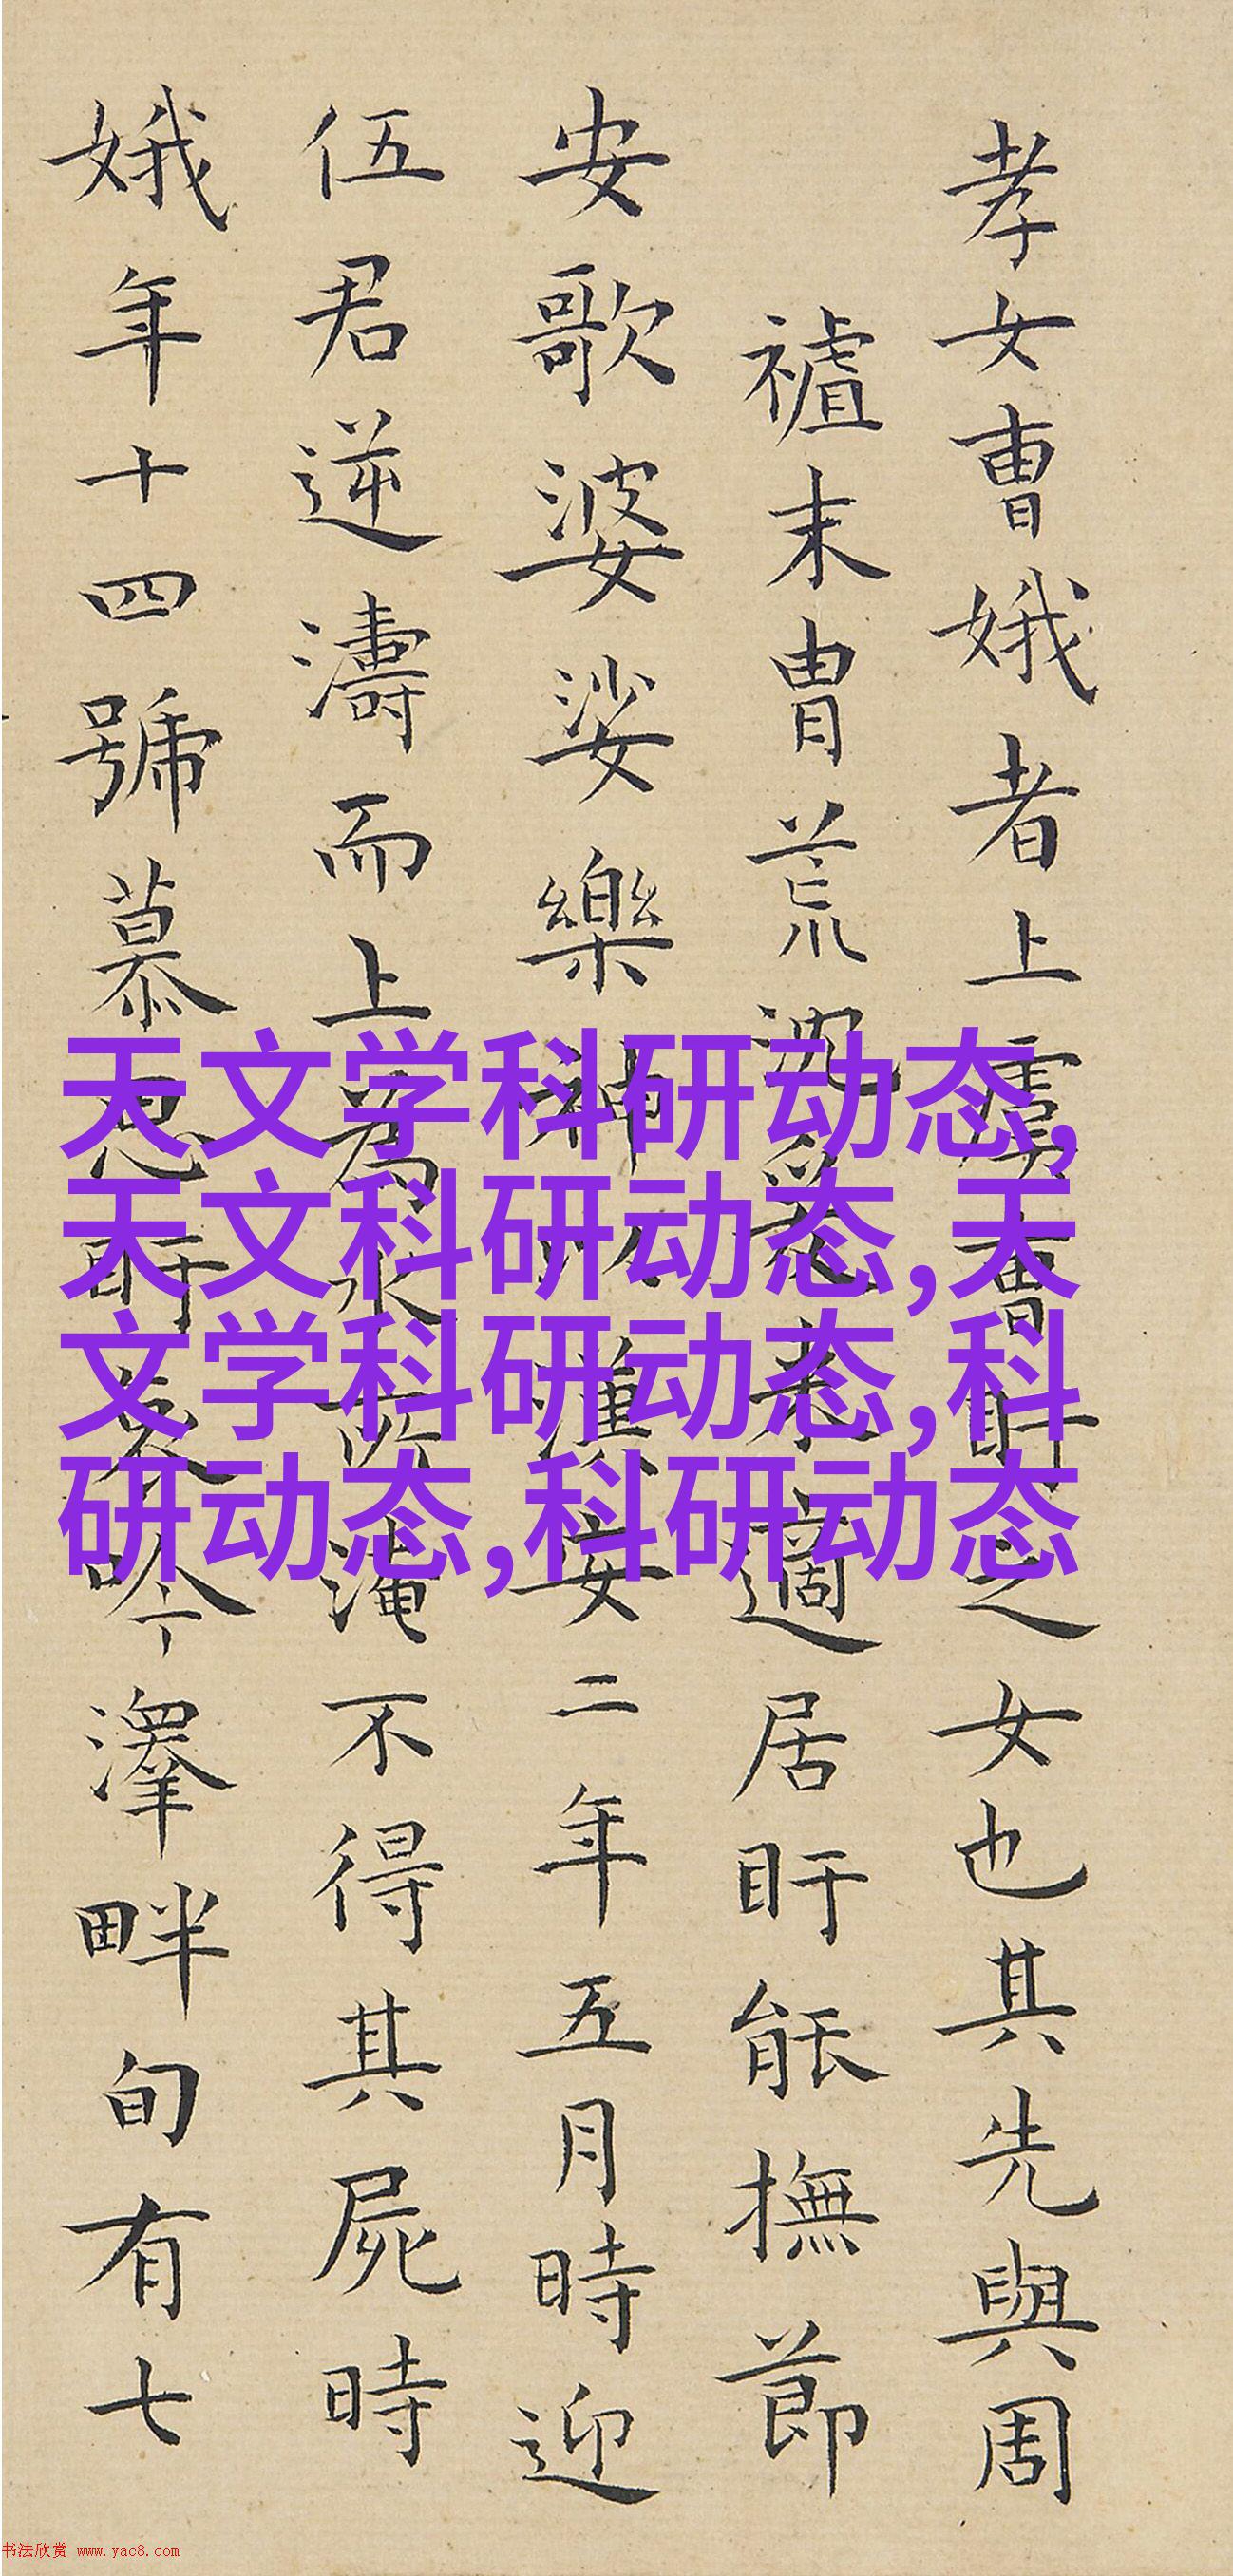 孝女曹娥者上虞曹盱之女也其先與周
禋末胄荒沈爰来適居盱能撫節
安歌婆娑樂神以漢安二年五月時迎
伍君逆濤而上為水所淹不得其屍時
娥年十四號慕思盱哀吟澤畔旬有七
天文学科研动态,
天文科研动态,天
文学科研动态,科
研动态,科研动态
书法欣赏 www.yac8.com